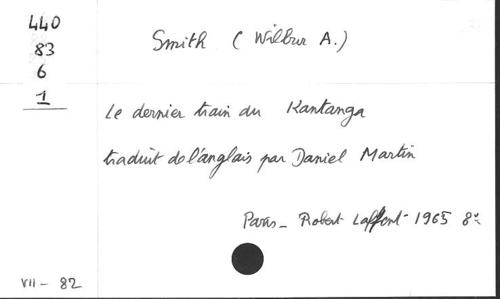 440
83
6
1
Smith (Wilbur A.)
Le dernier train du Kantanga
traduit de l'anglais par Daniel Martin
Paris - Robert Laffont - 1965 8°
VII - 82